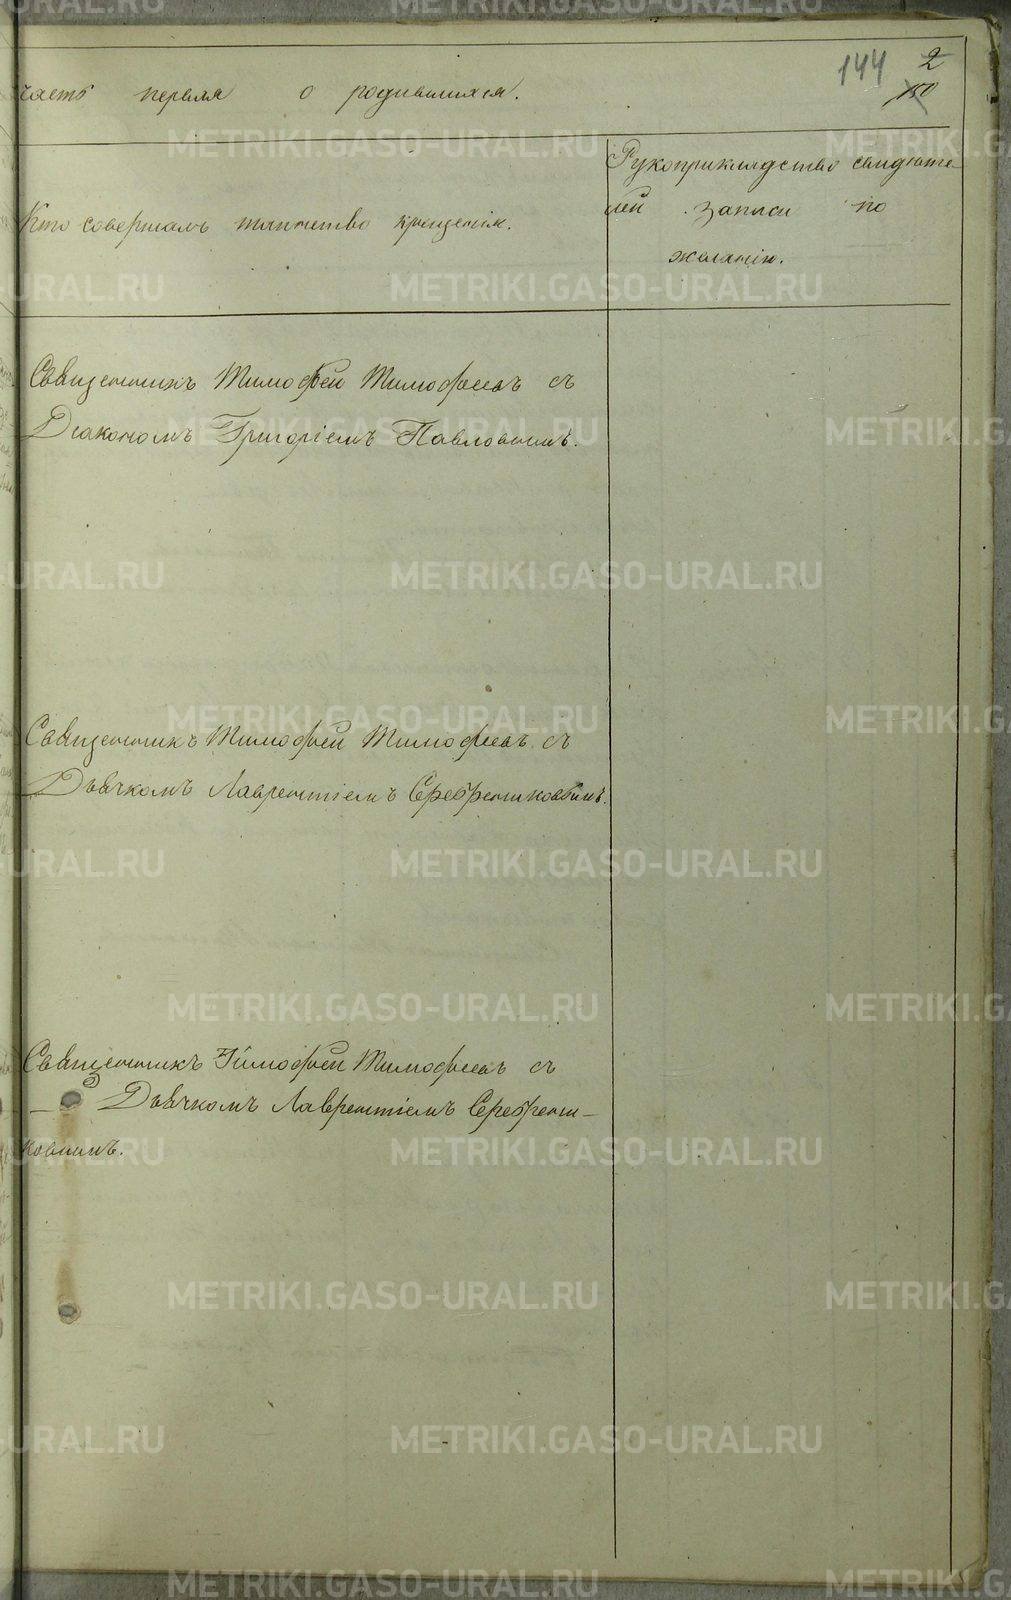 144 2
150
часть первая о родившихся.
Кто совершалъ таинство крещенія.
Рукоприкладство свидѣте-
лей записи по
желанію.
Священникъ Тимофей Тимофеевъ съ
Діакономъ Григоріемъ Павловымъ.
Священникъ Тимофей Тимофеевъ съ
Дьячкомъ Лаврентіемъ Серебрениковымъ.
Священникъ Тимофей Тимофеевъ съ
Дьячкомъ Лаврентіемъ Серебрени-
ковымъ.
METRIKI.GASO-URAL.RU